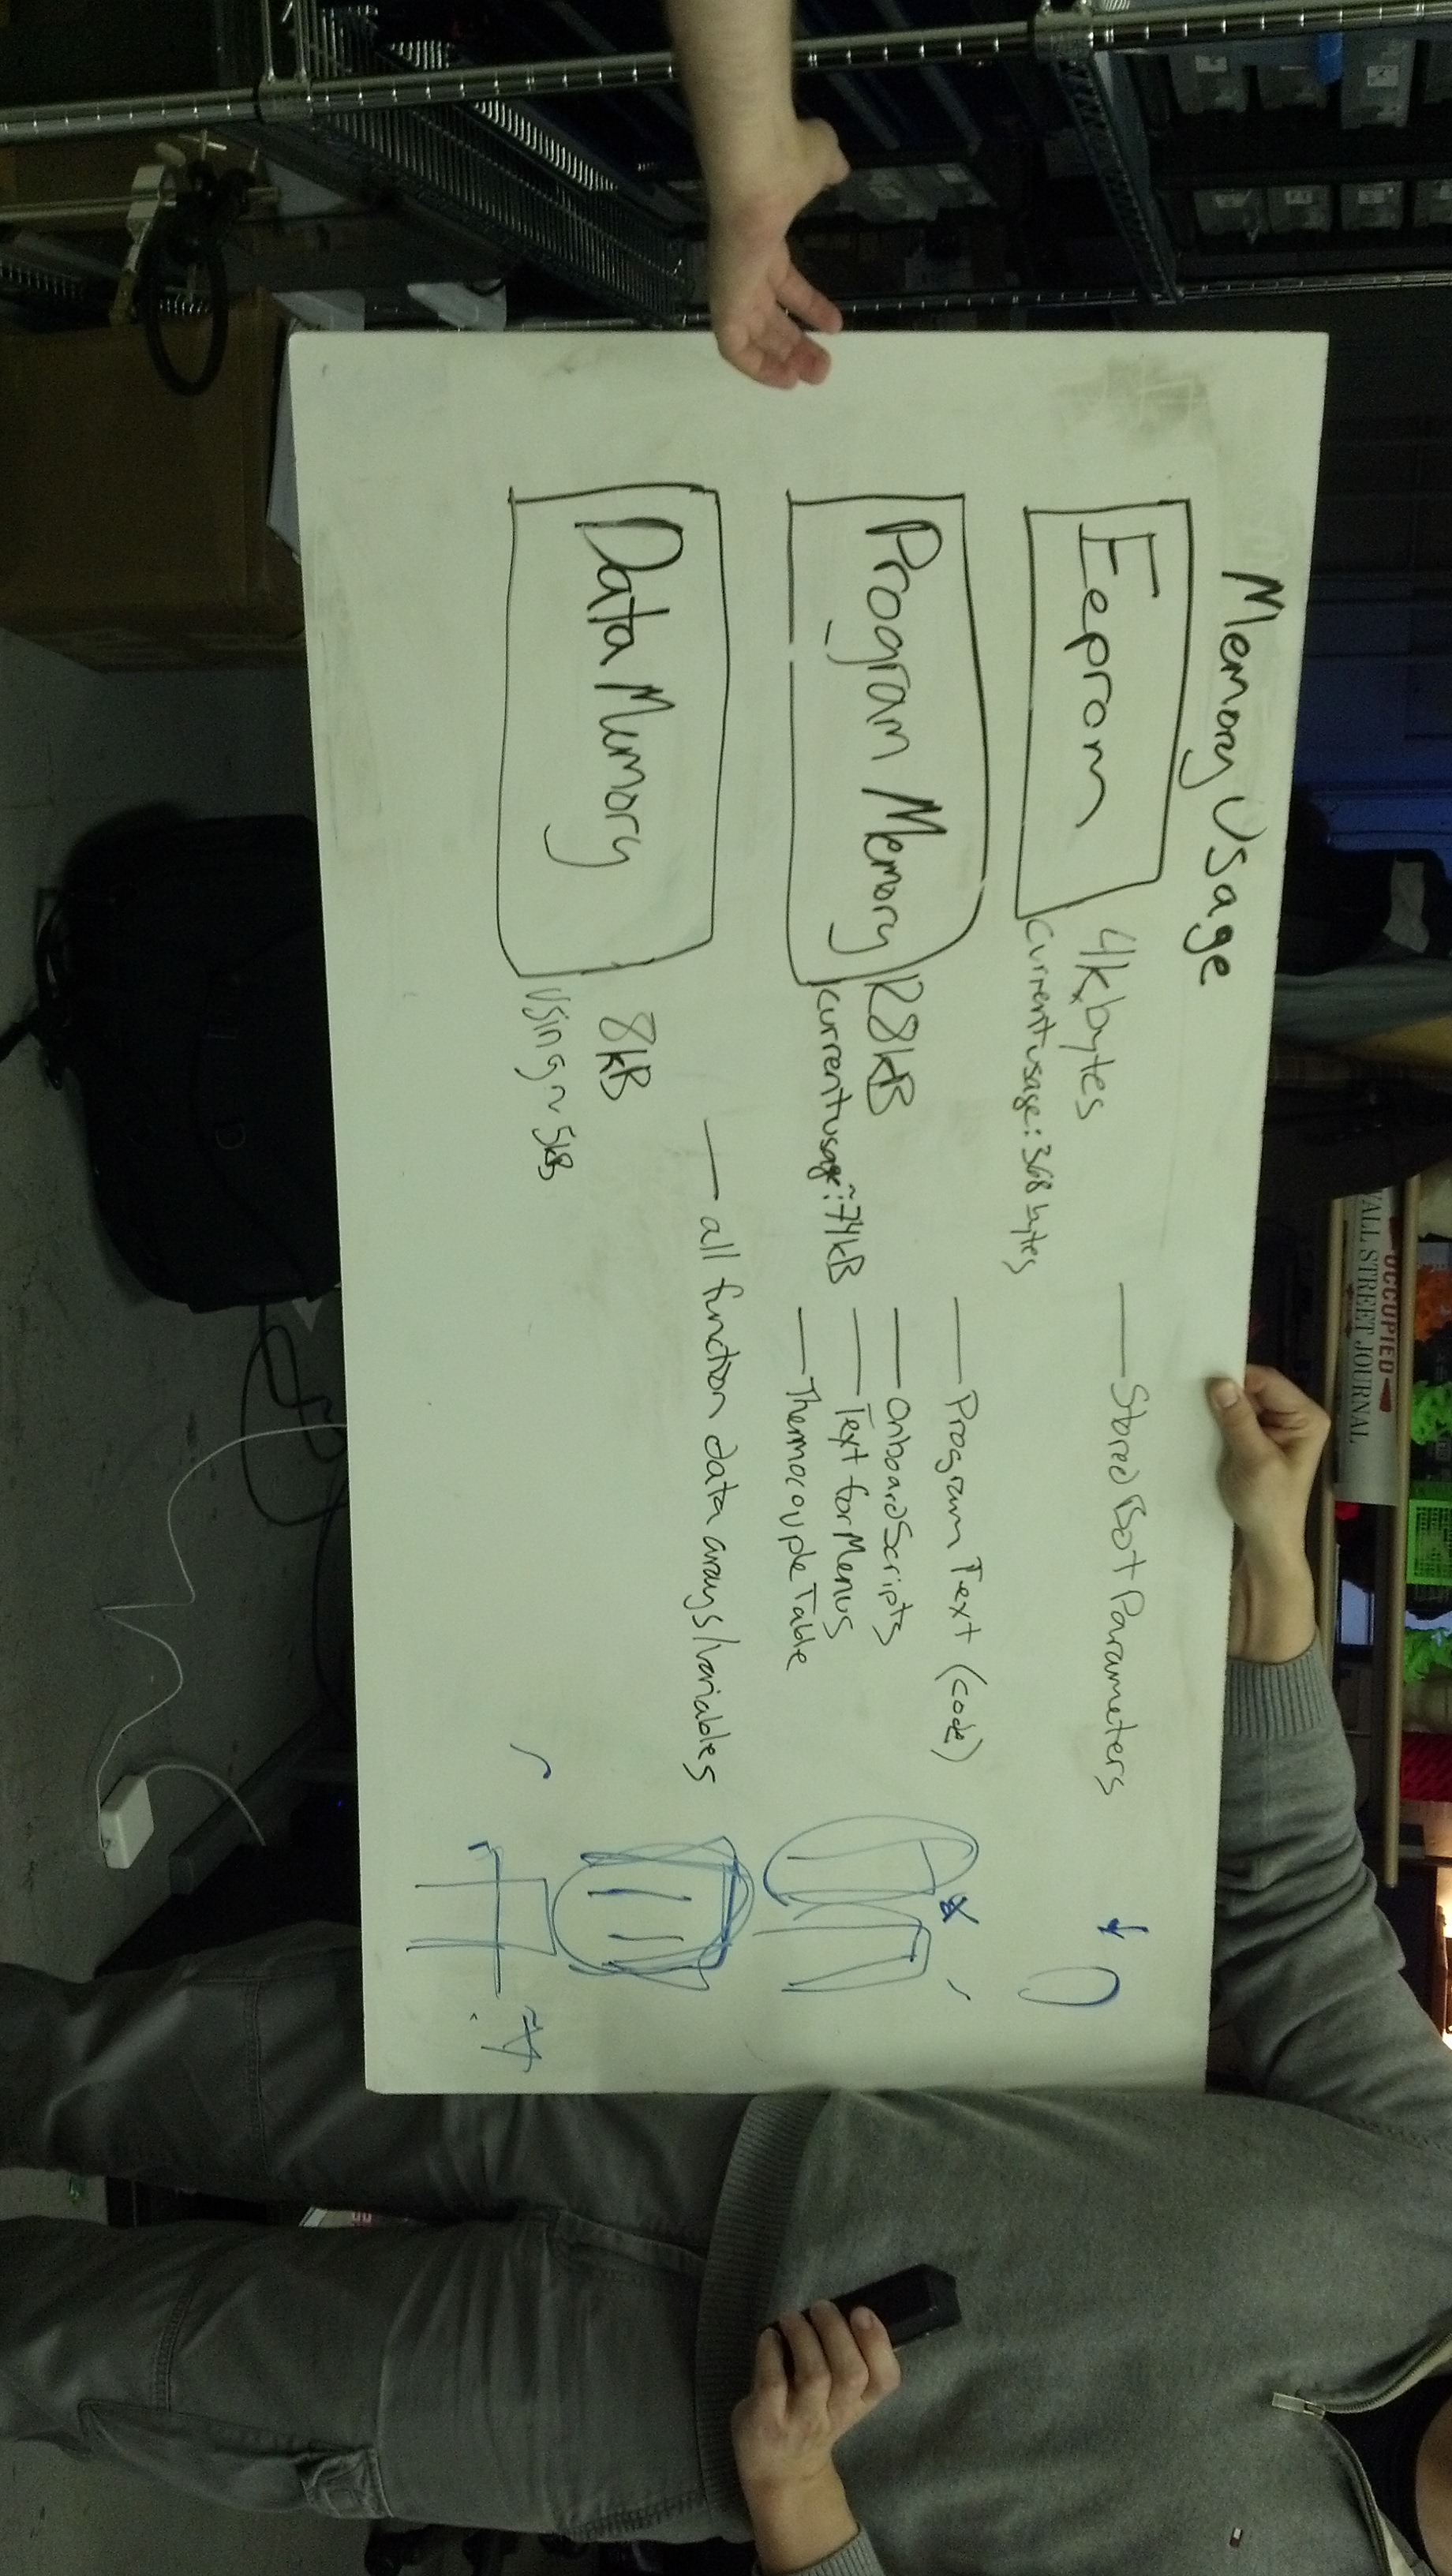 Memory Usage
Eeprom
4k bytes
current usage: 368 bytes
— Stored Bot Parameters
Program Memory
128kB
current usage: ~74kB
— Program Text (code)
— Onboard Scripts
— Text for Menus
— Thermocouple Table
Data Memory
8kB
Using ~ 5kB
— all function data arays/variables
OCCUPIED
WALL STREET JOURNAL